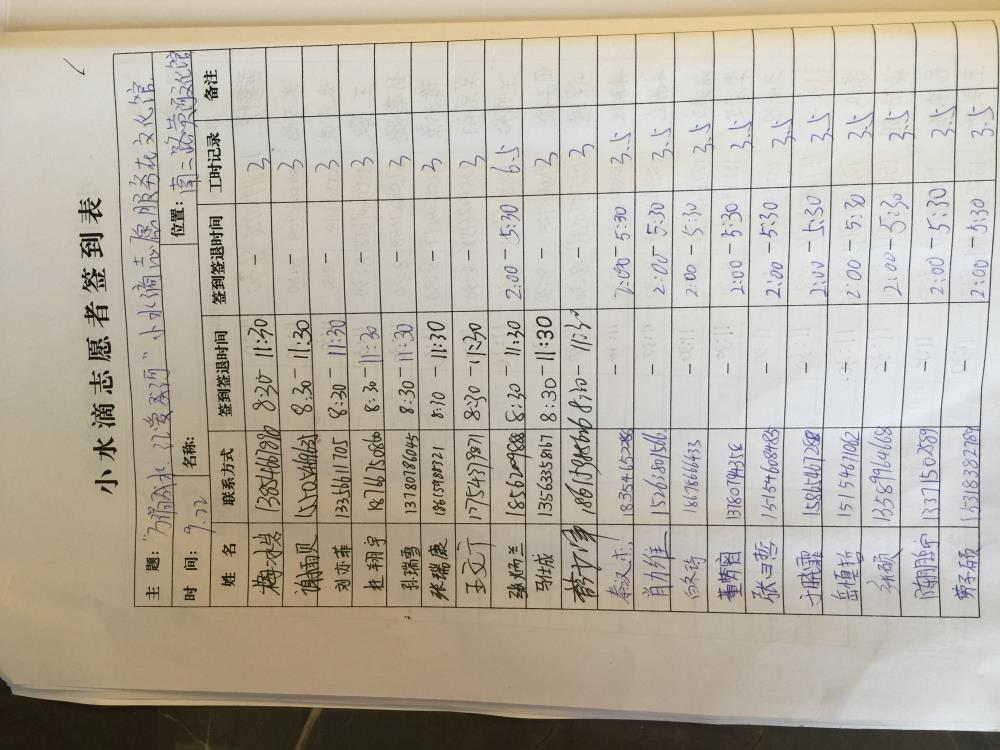 小水滴志愿者签到表
主 题: "江爱黄河" 小水滴志愿服务在文化馆
时 间: 9.22 名称: 位置: 南二路黄河文化馆
姓 名 联系方式 签到签退时间 签到签退时间 工时记录 备注
8:30 - 11:30 - 3
谢雨贝 8:30 - 11:30 - 3
刘亦菲 13356611705 8:30 - 11:30 - 3
杜翔宇 18766750866 8:30 - 11:30 - 3
孔瑞雪 13780786045 8:30 - 11:30 - 3
张瑞康 18615988321 8:30 - 11:30 - 3
王文丁 17754373871 8:30 - 11:30 - 3
张炳兰 18562009888 8:30 - 11:30 2:00 - 5:30 6.5
马仕成 13563358167 8:30 - 11:30 - 3
8:30 - 11:30 - 3
秦文杰 18354652286 - 2:00 - 5:30 3.5
肖力维 15263801566 - 2:00 - 5:30 3.5
18678666433 - 2:00 - 5:30 3.5
董梦茵 13780794358 - 2:00 - 5:30 3.5
张曰哲 15154608485 - 2:00 - 5:30 3.5
于晓霏 15865467288 - 2:00 - 5:30 3.5
岳卓哲 15154671062 - 2:00 - 5:30 3.5
13589964668 - 2:00 - 5:30 3.5
13371502889 - 2:00 - 5:30 3.5
15318382789 - 2:00 - 5:30 3.5